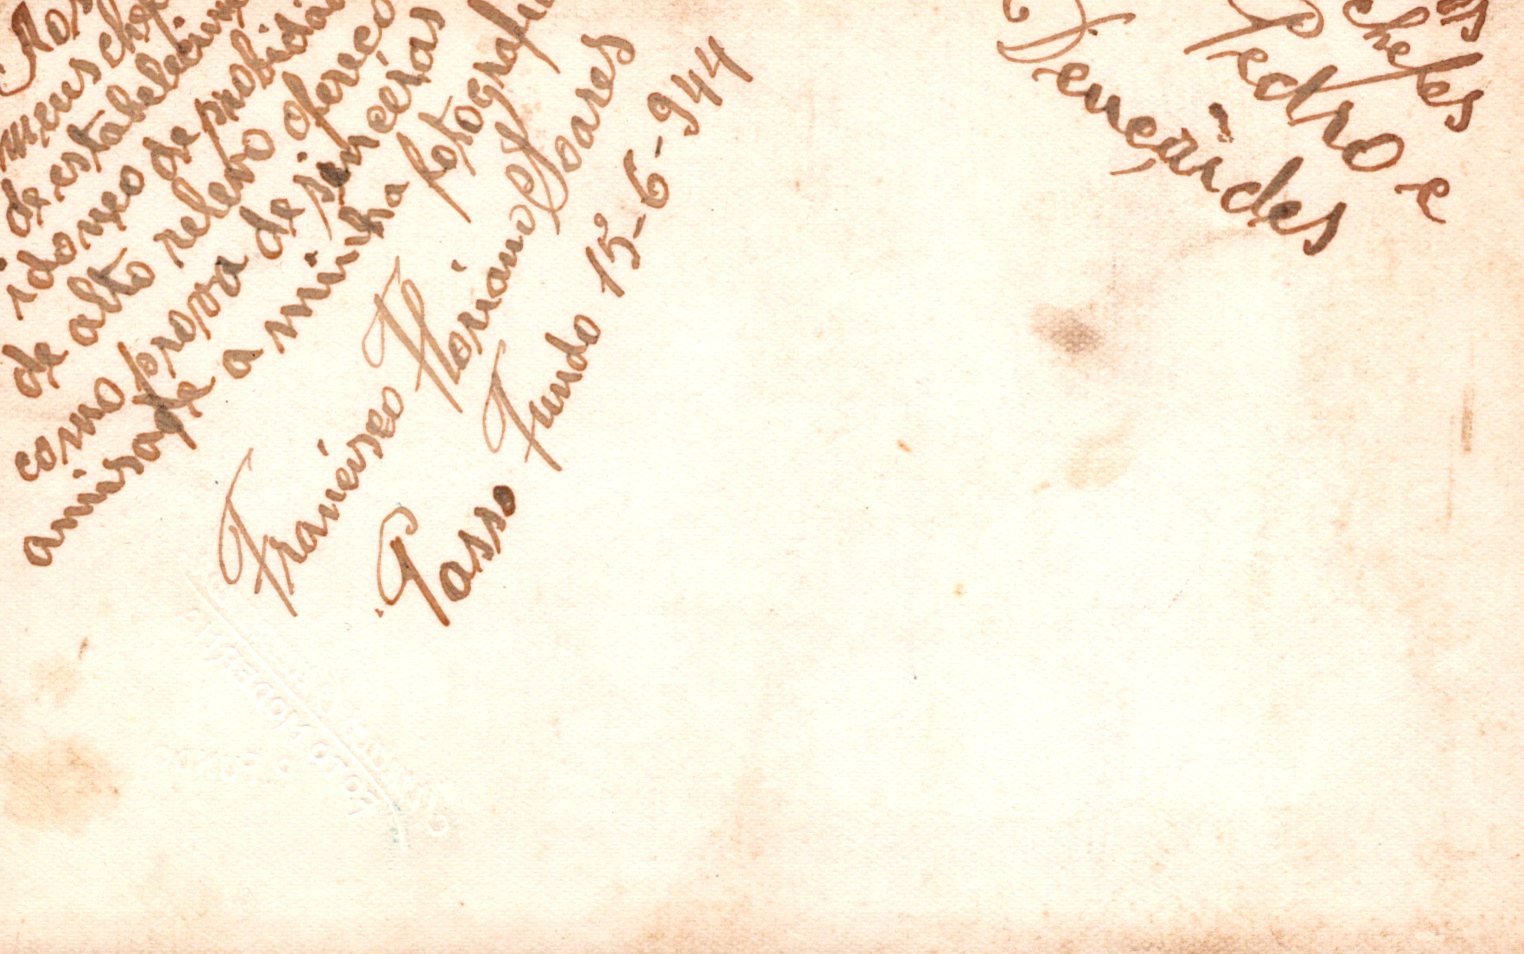 Aos
meus chef
de estabelecim
idoneo de probida
de alto relevo ofereço
como prova de sincéras
amisade a minha fotografi
Francisco Floriano Soares
Passo Fundo 15-6-944
chefes
Pedro e
FOTO MODERNA